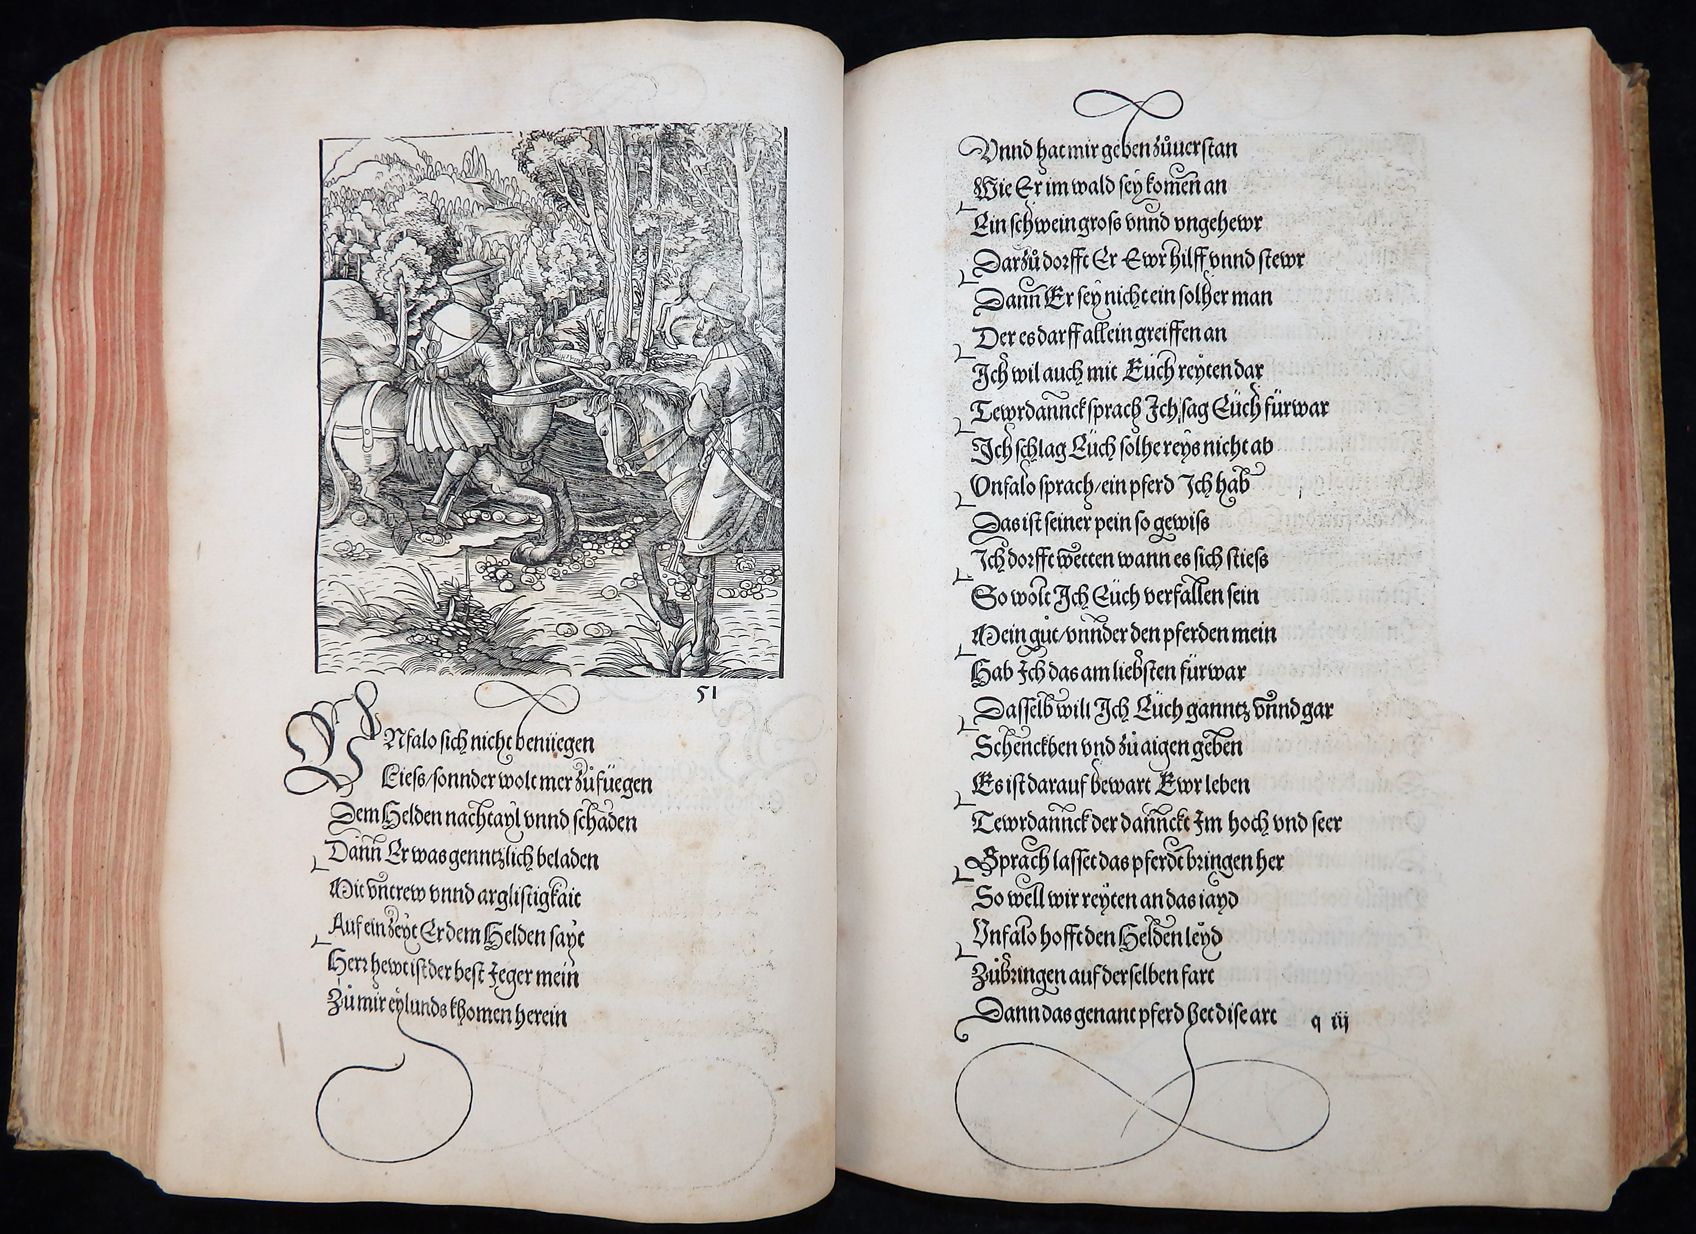 51
VNfalo sich nicht benüegen
Liess/sonnder wolt mer zůfüegen
Dem Helden nachtayl vnnd schaden
Dann Er was genntzlich beladen
Mit vntrew vnnd arglistigkait
Auf ein zeyt Er dem Helden sayt
Herr hewt ist der best Jeger mein
Zů mir eylunds khomen herein
Vnnd hat mir geben zůuerstan
Wie Er im wald sey komen an
Ein schwein gross vnnd vngehewr
Darzů dorfft Er Ewr hilff vnnd stewr
Dann Er sey nicht ein solher man
Der es darff allein greiffen an
Ich wil auch mit Euch reyten dar
Tewrdannck sprach Ich sag Eüch fürwar
Ich schlag Eüch solhe reys nicht ab
Vnfalo sprach/ein pferd Ich hab
Das ist seiner pein so gewiss
Ich dorfft wetten wann es sich stiess
So wolt Ich Eüch verfallen sein
Mein gůt/vnnder den pferden mein
Hab Ich das am liebsten fürwar
Dasselb will Ich Eüch ganntz vnnd gar
Schenckhen vnd zů aigen geben
Es ist darauf bewart Ewr leben
Tewrdannck der dannckt Im hoch vnd seer
Sprach lasset das pferdt bringen her
So well wir reyten an das iayd
Vnfalo hofft den Helden leyd
Zůbringen auf derselben fart
Dann das genant pferd het dise art
q iij